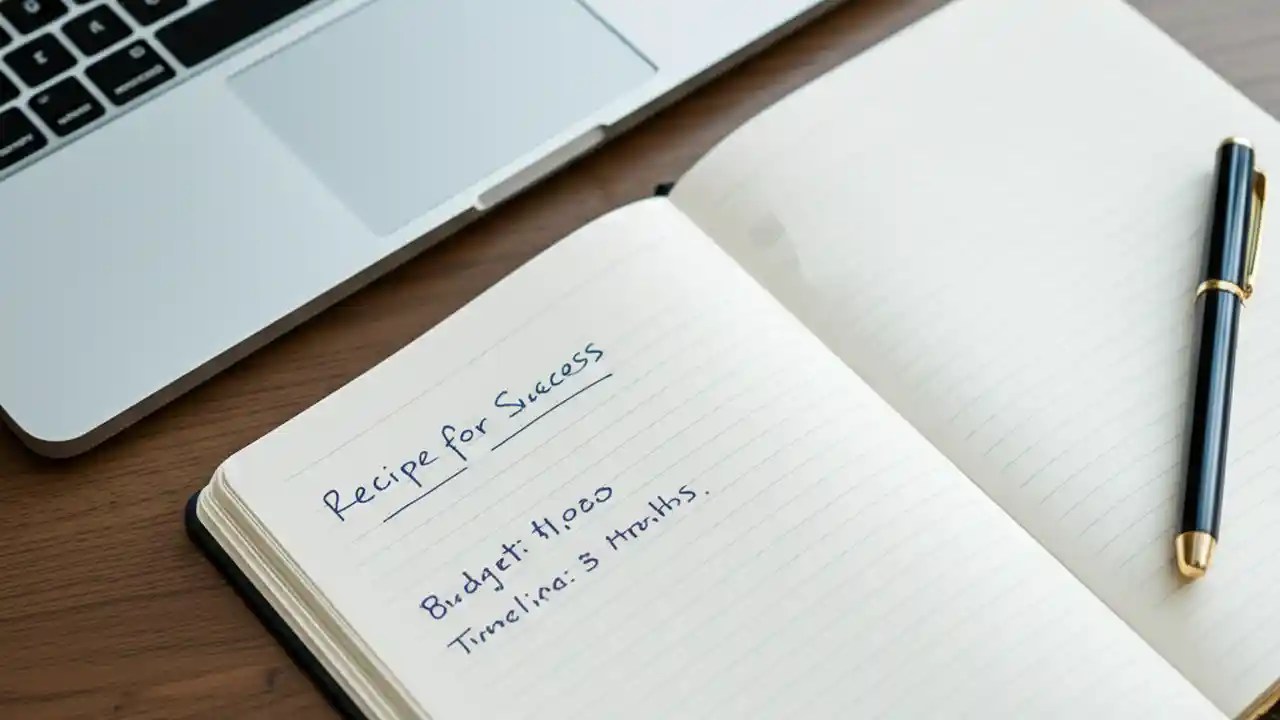 Recipe for Success
Budget: $1,000
Timeline: 3 Months.